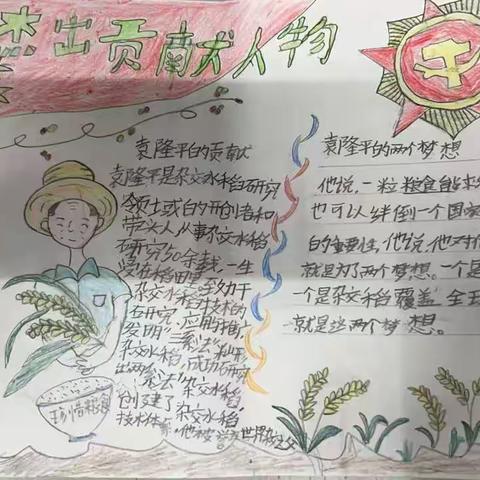 杰出贡献人物
袁隆平的贡献
袁隆平是杂交水稻研究
领土或的开创者和
带头人从事杂交水稻
研究50余载,一生
杂交水稻技术的
研究,应用推广
发明"三系法"籼形
杂交水稻,成功研究
出两系法杂交水稻,
创建了杂交水稻
世界
珍惜粮食
袁隆平的两个梦想
他说,一粒粮食能
也可以绊倒一个国
的重要性,他说,他对
就是为了两个梦想。一个是
个是杂交稻覆盖全
就是这两个梦想。